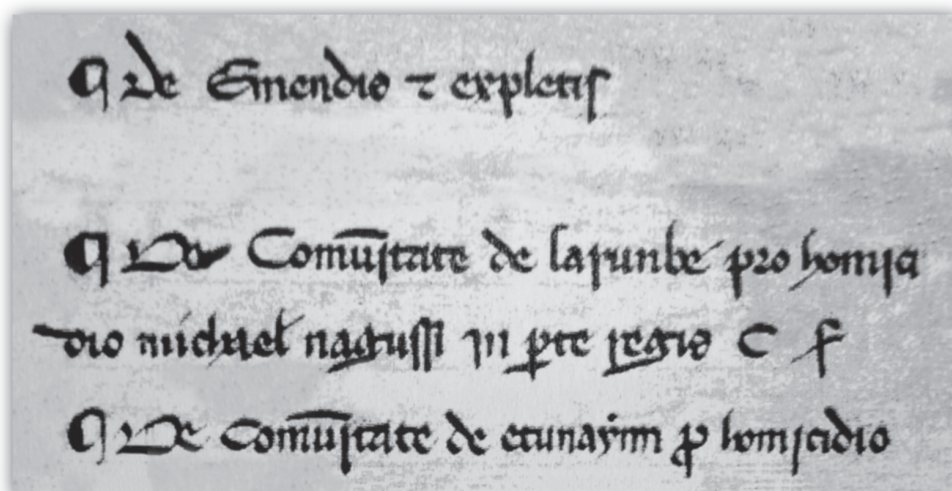 ¶ De Emendis ⁊ expletis
¶ De Comũitate de larunbe pro homici
dio michael nagussi in ꝑte regis C ſ
¶ De Comũitate de etunaynn ꝓ homicidio